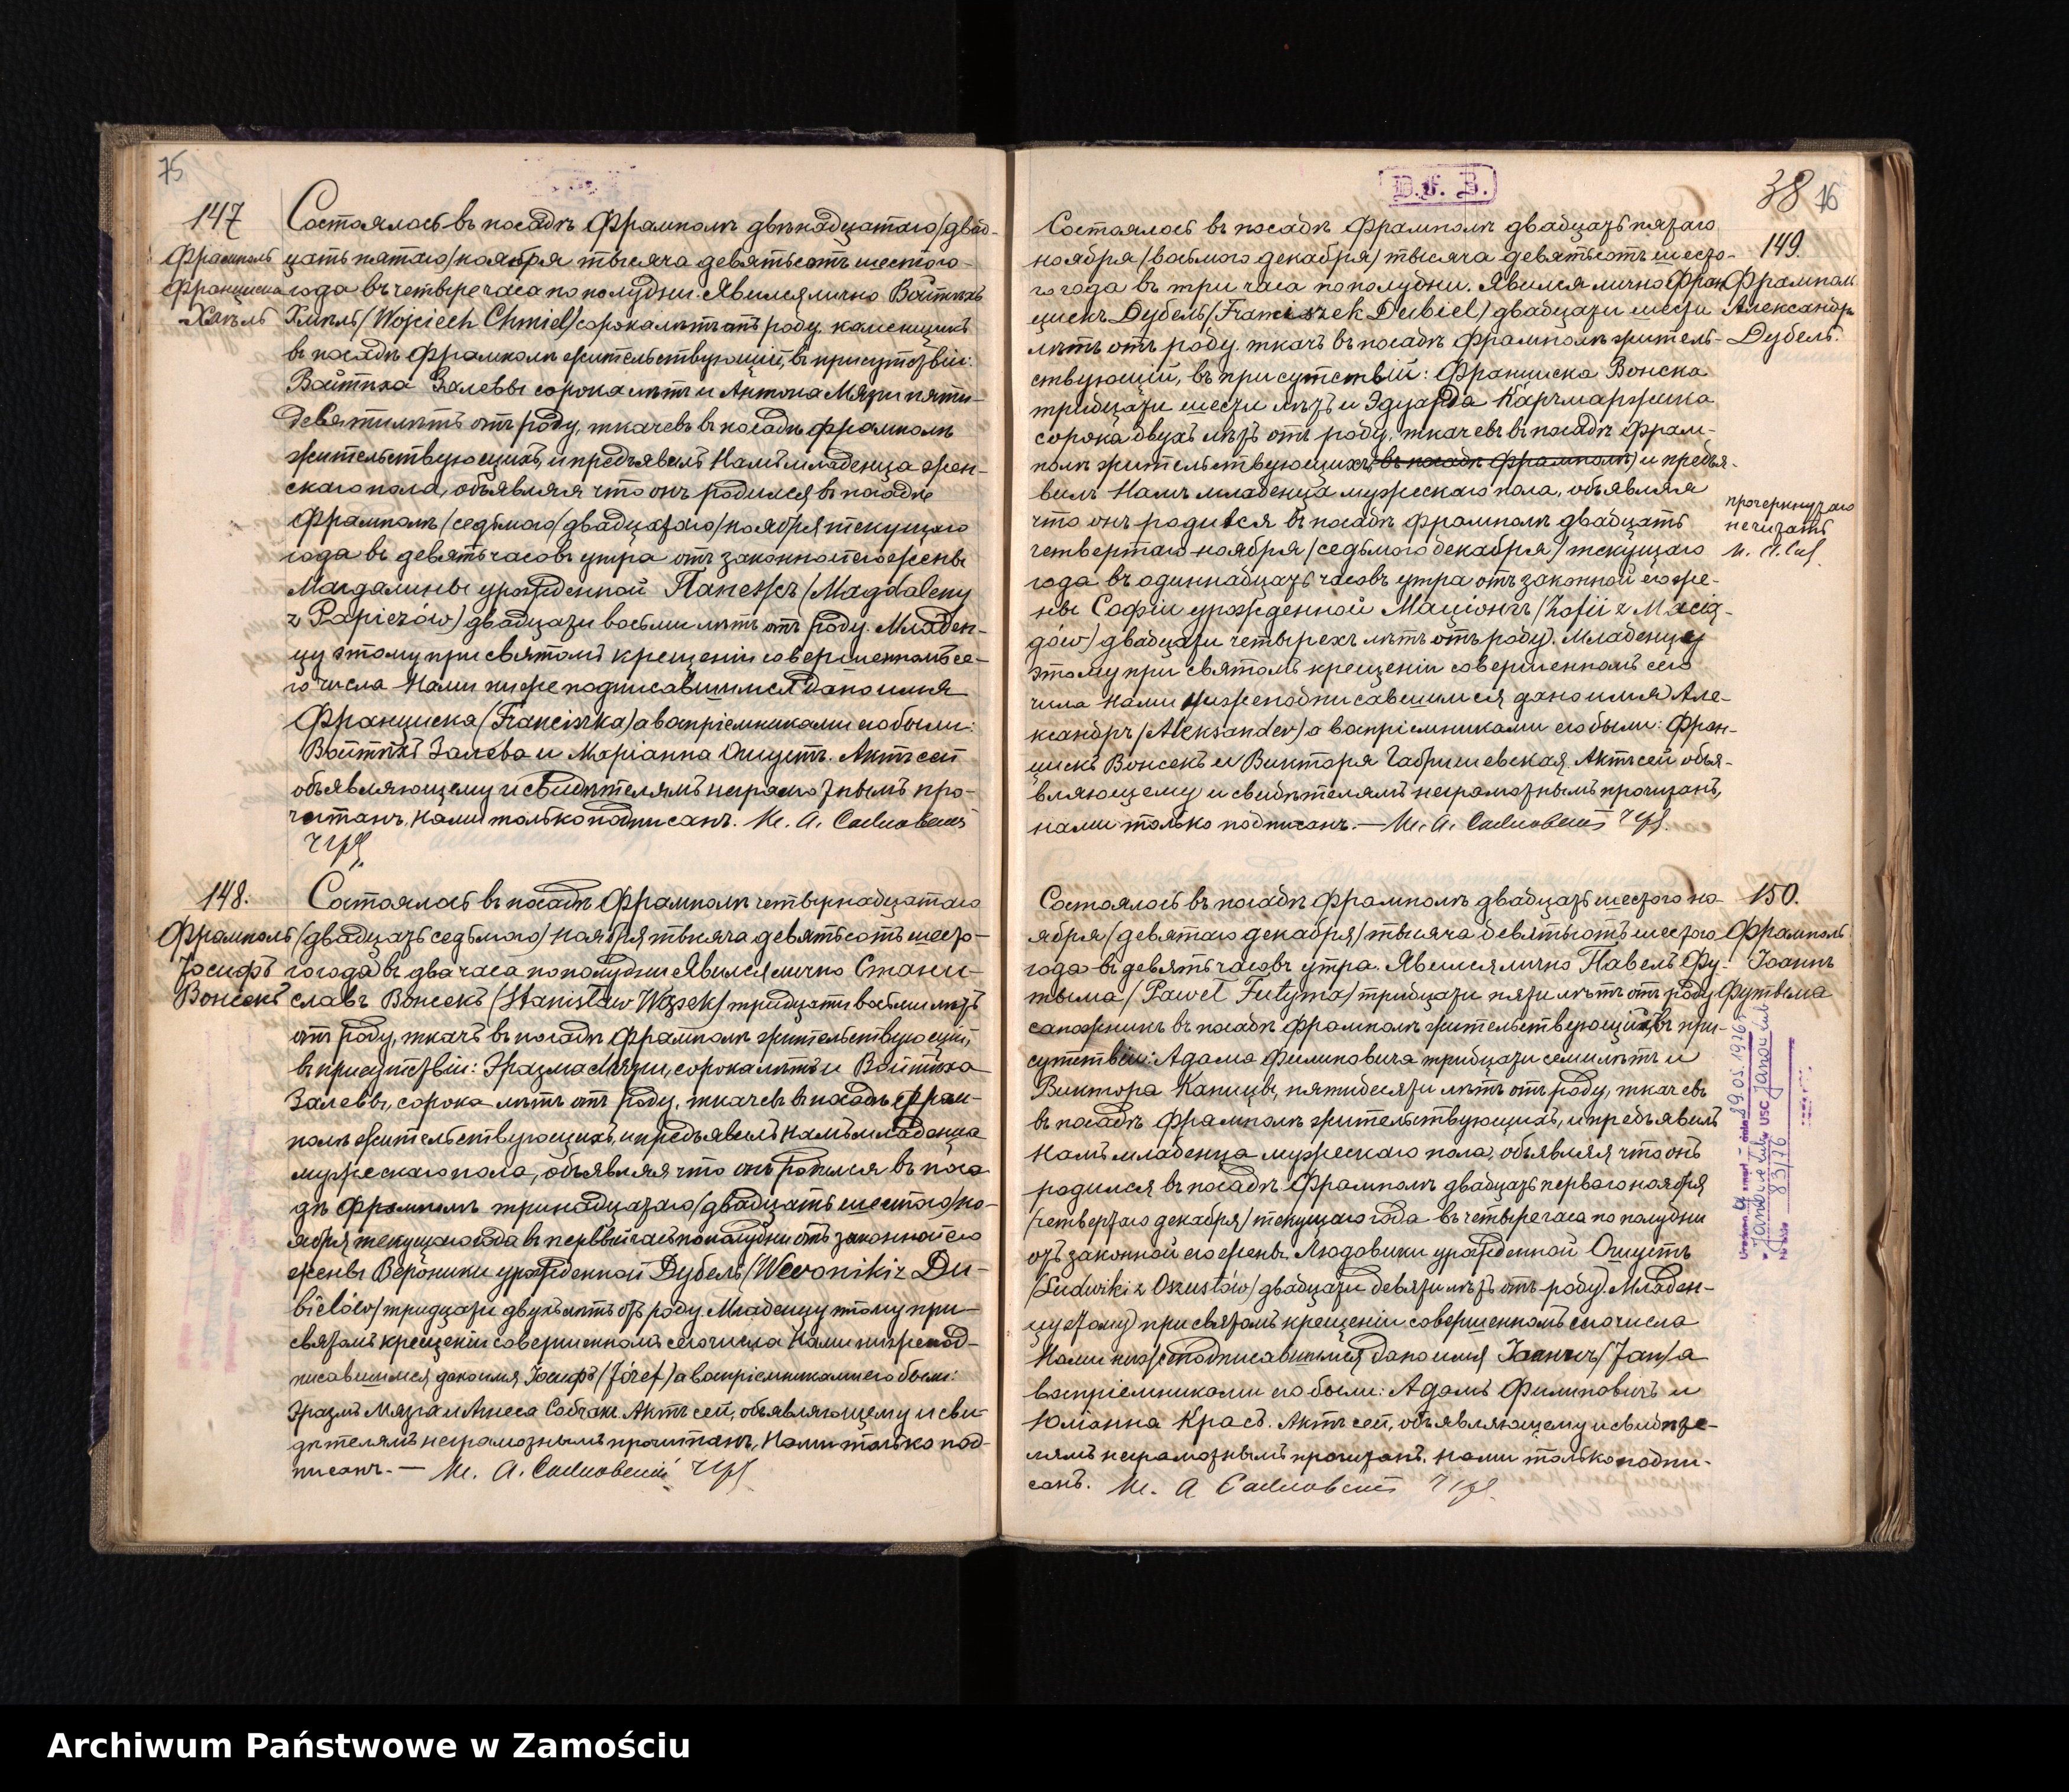 75
147
Фрамполь
Франциска
Хмѣль
Состоялось въ посадѣ Фрамполѣ двѣнадцатаго /двад-
цать пятаго/ ноября тысяча девятьсотъ шестого
года въ четыре часа по полудни. Явился лично Войтѣхъ
Хмѣль /Wojciech Chmiel/ сорока лѣтъ отъ роду каменщикъ
въ посадѣ Фрамполѣ жительствующій, въ присутствіи:
Войтѣха Залевы сорока лѣтъ и Антона Мязги пяти-
девяти лѣтъ отъ роду, ткачевъ въ посадѣ Фрамполѣ
жительствующихъ, и предъявилъ Намъ младенца жен-
скаго пола, объявляя что онъ родился въ посадѣ
Фрамполѣ /седьмого/ двадцатаго/ ноября текущаго
года въ девять часовъ утра отъ законной его жены
Магдалины урожденной Папежъ /Magdaleny
z Papieżów/ двадцати восьми лѣтъ отъ роду. Младен-
цу этому при святомъ крещеніи совершенномъ се-
го числа Нами нижеподписавшимся дано имя
Франциска /Franciszka/ а воспріемниками его были:
Войтѣхъ Залева и Маріанна Ошустъ. Актъ сей
объявляющему и свидѣтелямъ неграмотнымъ про-
читанъ, Нами только подписанъ.
148.
Фрамполь
Іосифъ
Вонсекъ
Состоялось въ посадѣ Фрамполѣ четырнадцатаго
/двадцать седьмого/ ноября тысяча девятьсотъ шесто-
го года въ два часа по полудни. Явился лично Стани-
славъ Вонсекъ /Stanisław Wąsek/ тридцати восьми лѣтъ
отъ роду, ткачъ въ посадѣ Фрамполѣ жительствующій,
въ присутствіи: Эразма Мязги, сорока лѣтъ и Войтѣха
Залевы, сорока лѣтъ отъ роду, ткачевъ въ посадѣ Фрам-
полѣ жительствующихъ, и предъявилъ Намъ младенца
мужескаго пола, объявляя что онъ родился въ поса
дѣ Фрамполѣ тринадцатаго /двадцать шестого/ но-
ября текущаго года въ первый часъ по полудни отъ законной его
жены Вероники урожденной Дубель /Weroniki z Du-
bielów/ тридцати двухъ лѣтъ отъ роду. Младенцу этому при
святомъ крещеніи совершенномъ сего числа Нами нижепод-
писавшимся дано имя Іосифъ /Józef/ а воспріемниками его были:
Эразмъ Мязга и Агнеса Собчакъ. Актъ сей, объявляющему и сви-
дѣтелямъ неграмотнымъ прочитанъ, Нами только под-
писанъ.—
D. F. B.
38 76
149.
Фрамполь
Александръ
Дубель.
Состоялось въ посадѣ Фрамполѣ двадцать пятаго
ноября /восьмого декабря/ тысяча девятьсотъ шесто-
го года въ три часа по полудни. Явился лично Фран-
цискъ Дубель /Franciszek Dubiel/ двадцати шести
лѣтъ отъ роду, ткачъ въ посадѣ Фрамполѣ житель-
ствующій, въ присутствіи: Франциска Вонска
тридцати шести лѣтъ и Эдуарда Карчмаржика
сорока двухъ лѣтъ отъ роду, ткачевъ въ посадѣ Фрам-
полѣ жительствующихъ, въ посадѣ Фрамполѣ) и предъя-
вилъ Намъ младенца мужескаго пола, объявляя
что онъ родился въ посадѣ Фрамполѣ двадцать
четвертаго ноября /седьмого декабря/ текущаго
года въ одиннадцать часовъ утра отъ законной его же-
ны Софіи урожденной Маціонгъ /Zofii z Macią-
gów/ двадцати четырехъ лѣтъ отъ роду. Младенцу
этому при святомъ крещеніи совершенномъ сего
числа Нами нижеподписавшимся дано имя Але-
ксандръ /Aleksander/ а воспріемниками его были: Фран-
цискъ Вонсекъ и Викторя Габришевская. Актъ сей объя-
вляющему и свидѣтелямъ неграмотнымъ прочитанъ,
нами только подписанъ.—
прочеркнутаго
не читать
150.
Фрамполь
Іоаннъ
Футыма
Состоялось въ посадѣ Фрамполѣ двадцать шестого но-
ября /девятаго декабря/ тысяча девятьсотъ шестого
года въ девять часовъ утра. Явился лично Павелъ Фу-
тыма /Paweł Futyma/ тридцати пяти лѣтъ отъ роду
сапожникъ въ посадѣ Фрамполѣ жительствующій, въ при-
сутствіи: Адама Филиповича тридцати семи лѣтъ и
Виктора Капицы, пятидесяти лѣтъ отъ роду, ткачевъ
въ посадѣ Фрамполѣ жительствующихъ, и предъявилъ
Намъ младенца мужескаго пола, объявляя что онъ
родился въ посадѣ Фрамполѣ двадцать перваго ноября
/четвертаго декабря/ текущаго года въ четыре часа по полудни
отъ законной его жены Людовики урожденной Ошустъ
/Ludwiki z Oszustów/ двадцати девяти лѣтъ отъ роду. Младен-
цу этому при святомъ крещеніи совершенномъ сего числа
Нами нижеподписавшимся дано имя Іоаннъ /Jan/ а
воспріемниками его были: Адамъ Филиповичъ и
Юліанна Красъ. Актъ сей, объявляющему и свидѣте-
лямъ неграмотнымъ прочитанъ, нами только подпи-
санъ.
83/76
Archiwum Państwowe w Zamościu